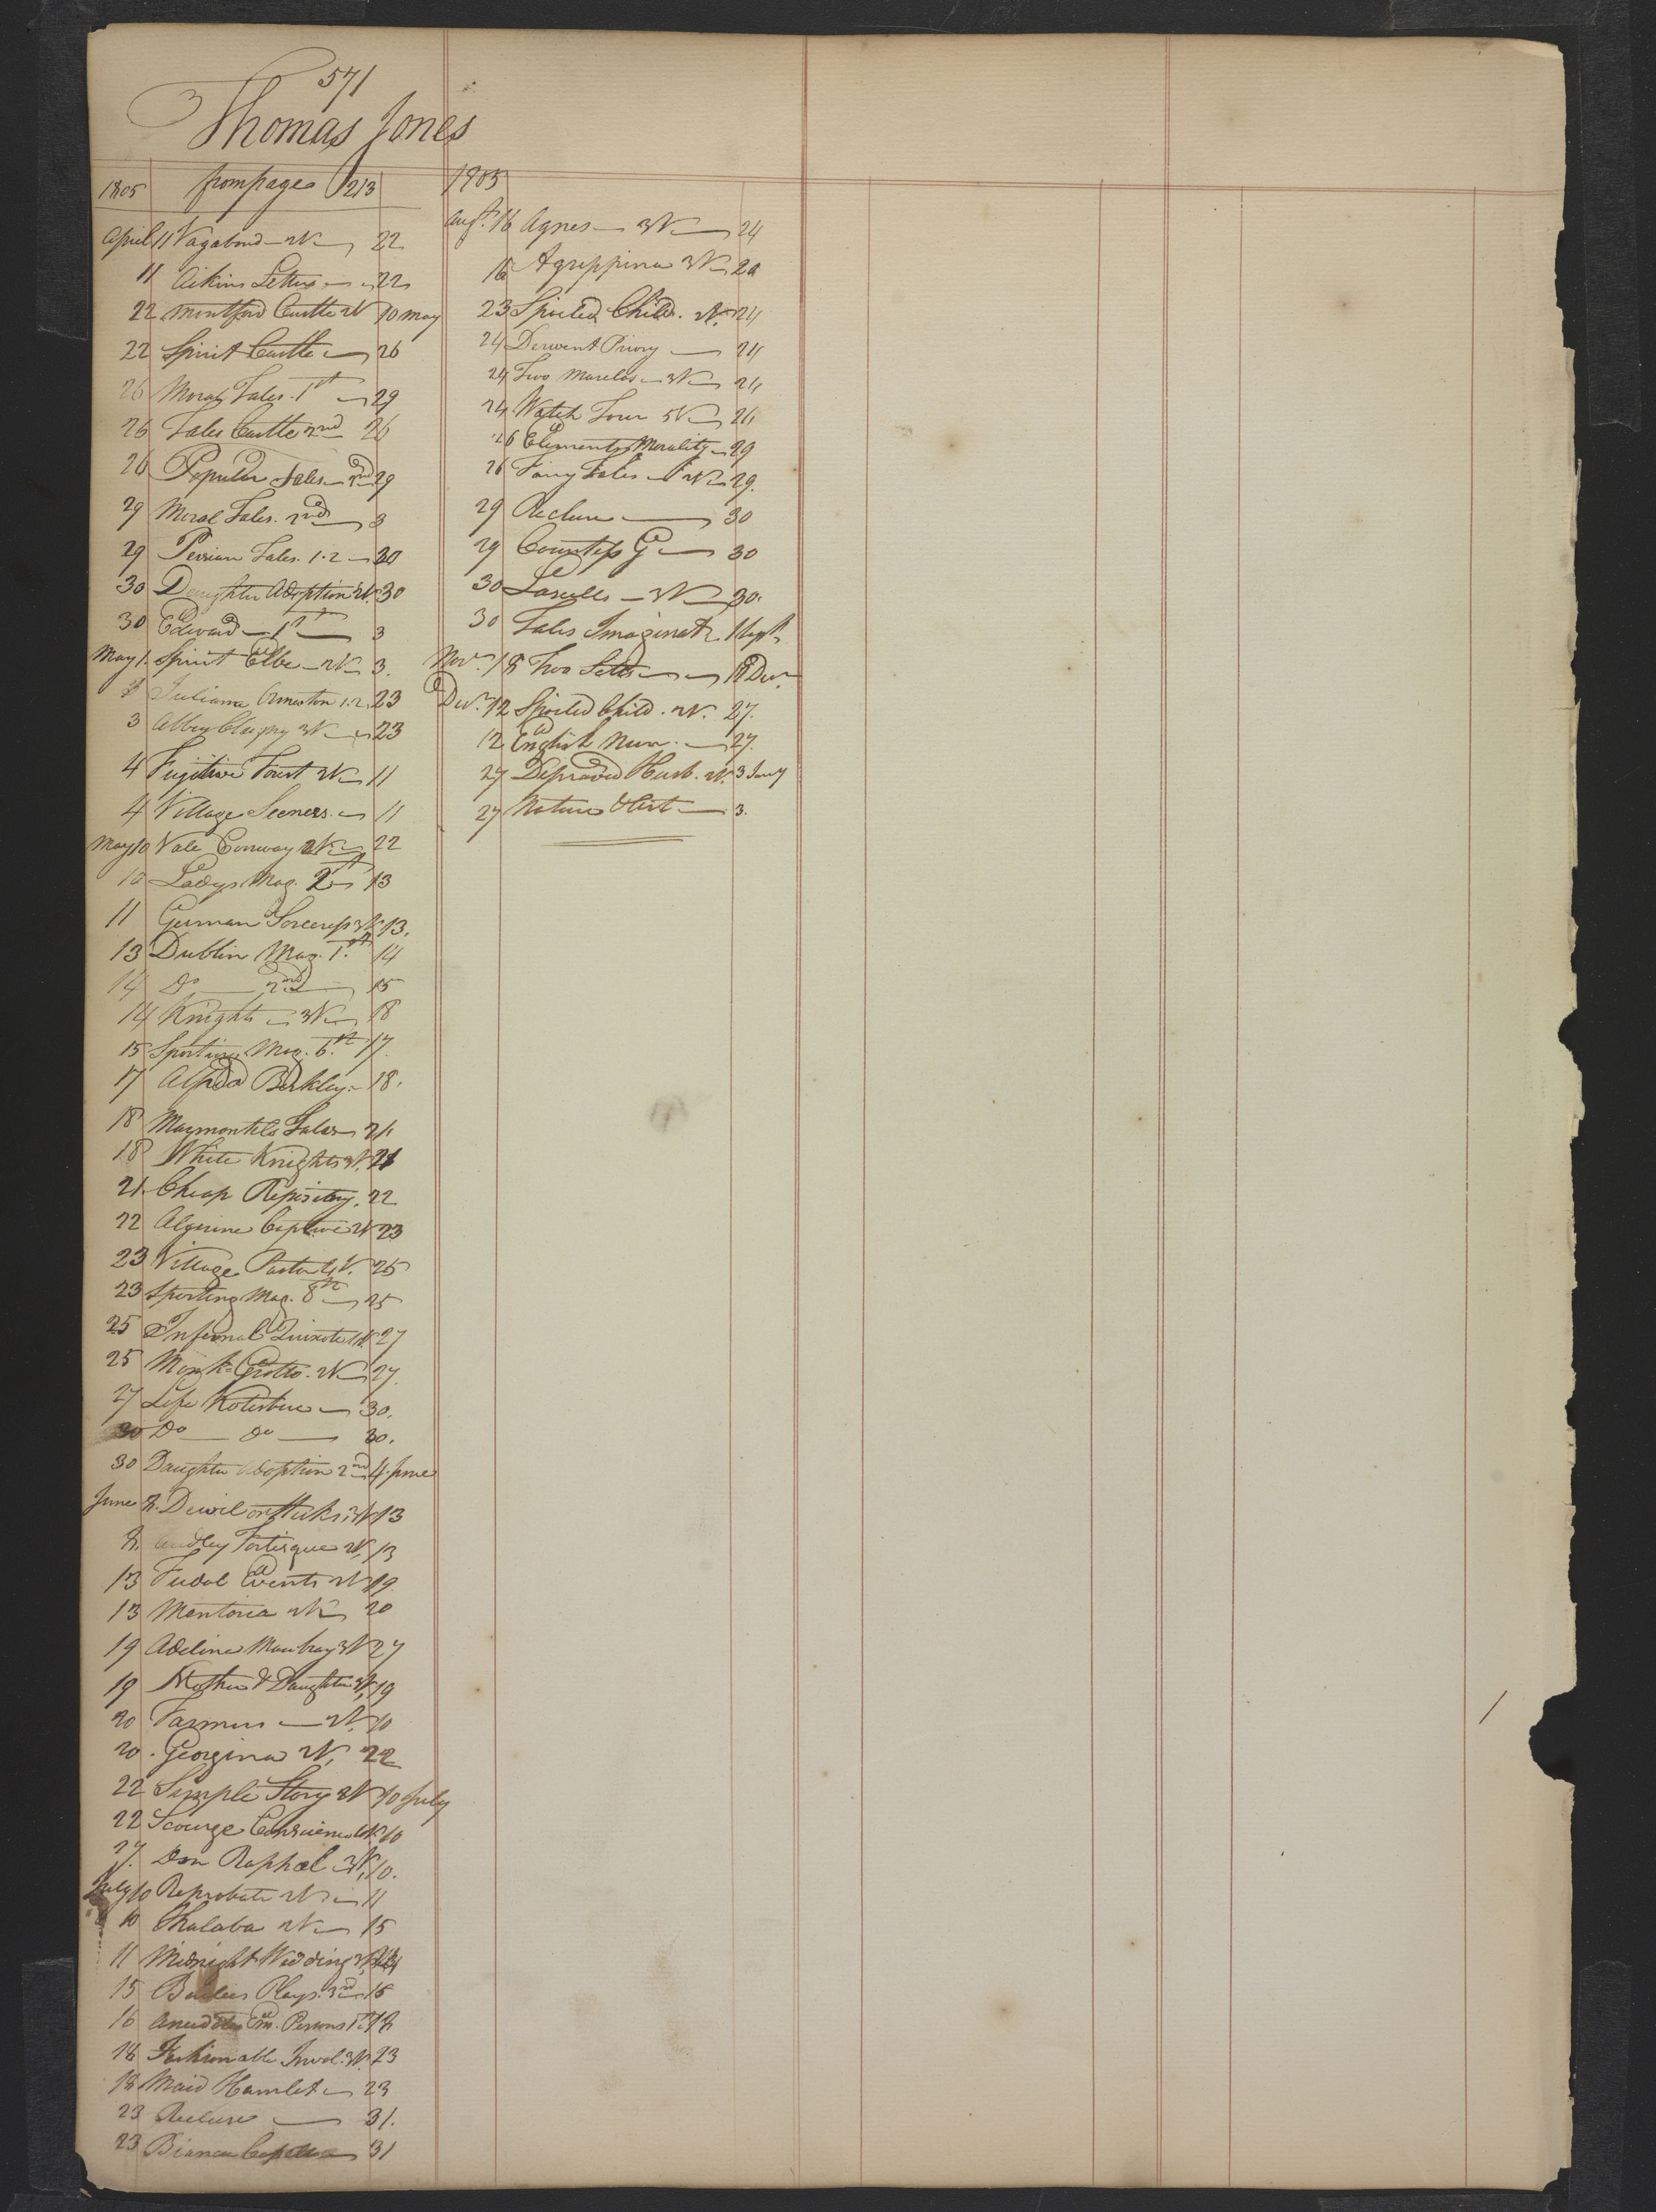 571
Thomas Jones
1805 from page 213
April 11 Vagabond - 2V 22
11 Aikins Letters 22
22 Montford Castle 2V 10 May
22 Spirit Castle 26
26 Moral Tales 1st 29
26 Tales Castle 2nd 26
26 Popular Tales 2nd 29
29 Moral Tales 2nd 3
29 Persian Tales 1.2 30
30 Daughter Adoption 2V. 30
30 Edward 1st 3
May 1. Spirit Elbe 2V 3.
Juliana Ormeston 1.2 23
3 Abbey Clugny 3V 23
4 Fugitive Forest 2V 11
4 Village Sceners 11
May 10 Vale Conway 2V 22
10 Ladys Mag. 13
11 German Sorceress 3V 13.
13 Dublin Mag. 1st 14
14 Do 2nd 15
14 Knights 3V 18
15 Sporting Mag. 6th 17.
17 Alfred Berkley 18.
18 Marmontels Tales 21
18 White Knights 3V. 21
21. Cheap Repisitory. 22
22 Algerine Captive 2V 23
23 Village Pastor 4V. 25
23 Sporting Mag. 8th 25
25 Infernal Quixote 4V. 27
25 Monk Grotto. 2V 27.
27 Life Kotzbue 30.
30 Do do 30.
30 Daughter Adoption 2nd 4. June
June 8. Devil on Sticks 3V 13
8. Audley Fortisque 2V, 13
13 Fudal Events 2V 19.
13 Mentoria 2V 20
19 Adeline Mowbray 3V 27
19 Mother & Daughter 3V, 19
20 Farmers 2V. 10
20. Georgina 2V, 22
22 Simple Story 2V 10 July
22 Scourge Conscience 4V. 10
27. Don Raphael 3V, 10.
July 10 Reprobate 2V 11
10 Thalaba 2V 15
11 Midnight Wedding 3V
15 Plays. 3rd 16
16 Anecdotes Em. Persons 1st 18
18 Fashionable Invol. 3V. 23
18 Maid Hamlet 23
23 Recluse 31.
23 Bianca Capello 31
1805
Augt. 16 Agnes 3V 24
16 Agrippina 3V 24
23 Spoiled Child. 2V. 24
24 Derwent Priory 24
24 Two Marclas 3V 24
24 Watch Tour 5V 26
26 Elements Morality 29
26 Fairy Tales 2V 29.
29 Recluse 30
29 Countess G 30
30 Lascelles 3V 30.
30 Tales Imaginatn 1 Sept
Novr. 18 Two Setts 11 Decr
Decr. 12 Spoiled Child. 2V. 27.
12 English Nun. 27.
27 Depraved Husb. 2V. 3 Jany
27 Nature & Art 3.